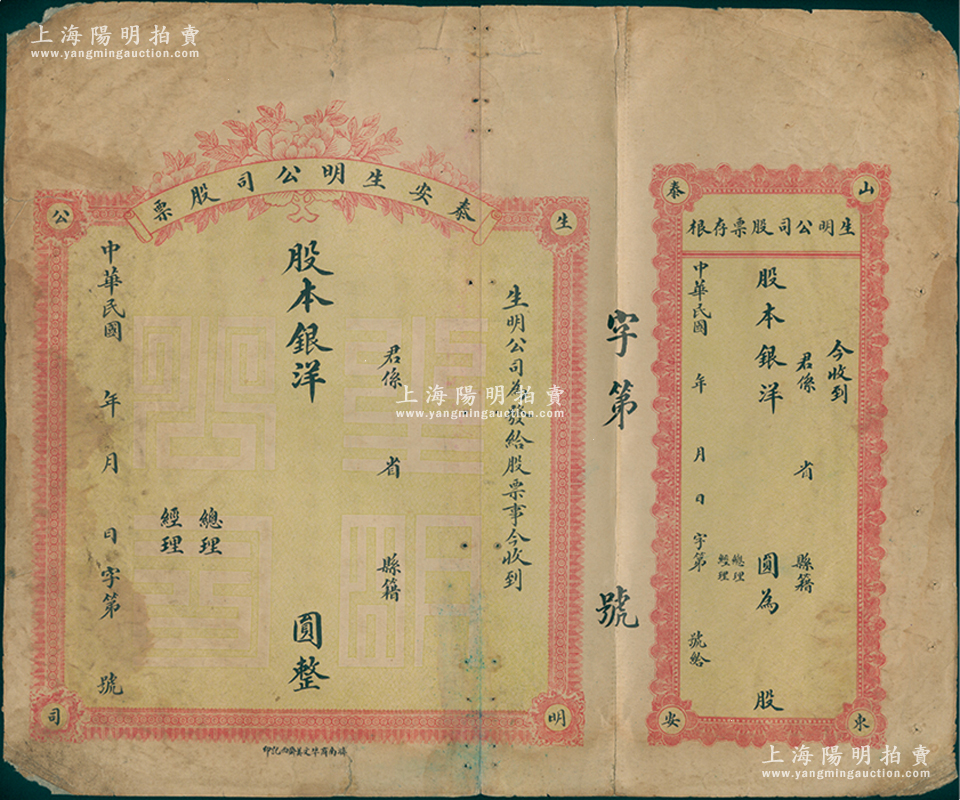 上海陽明拍賣
www.yangmingauction.com
上海陽明拍賣
www.yangmingauction.com
山
泰
東
安
生明公司股票存根
今收到
君係 省 縣籍
股本銀洋 圓為 股
總理
經理
中華民國 年 月 日 字第 號給
字第 號
泰安生明公司股票
生
明
公
司
生明公司為發給股票事今收到
君係 省 縣籍
股本銀洋 圓整
總理
經理
中華民國 年 月 日 字第 號
上海陽明拍賣
www.yangmingauction.com
上海陽明拍賣
www.yangmingauction.com